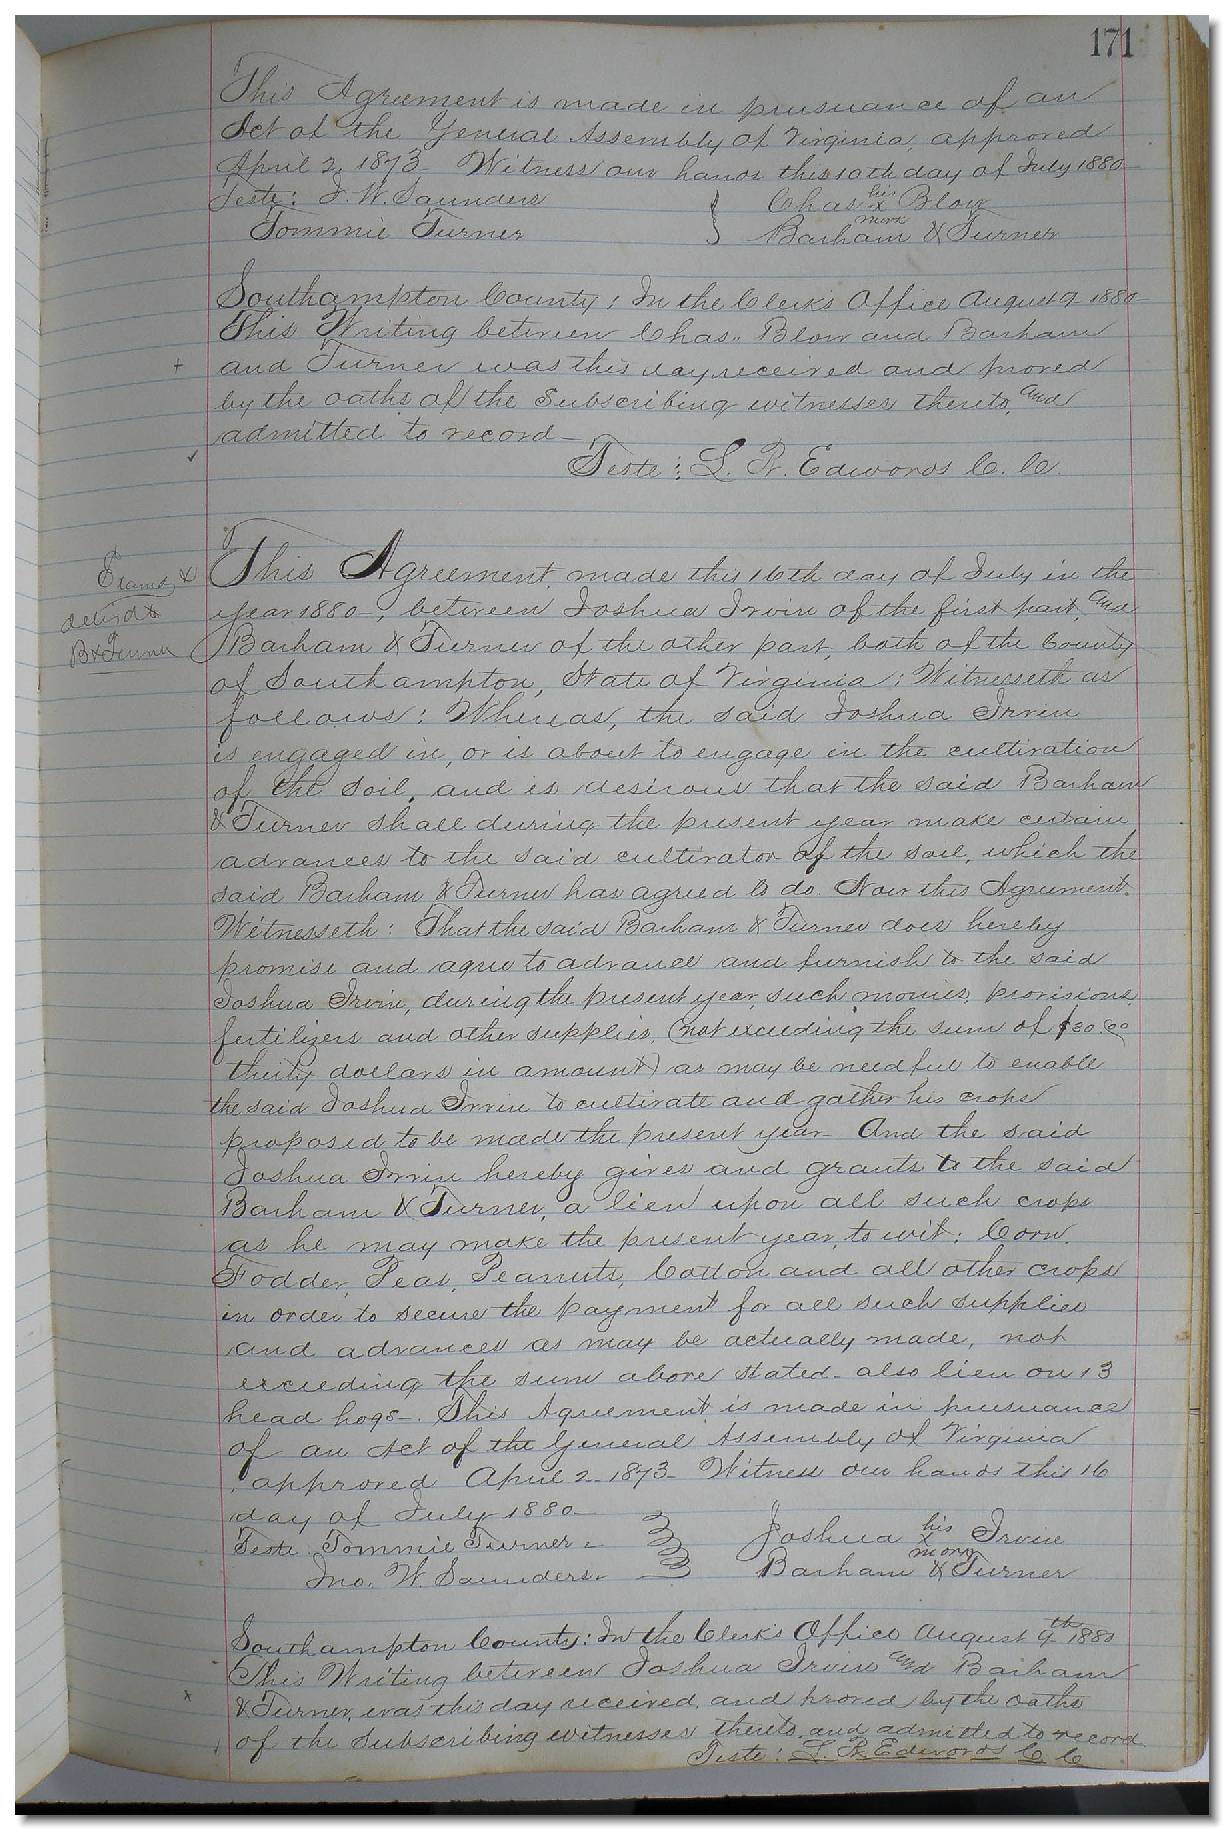 171
This Agreement is made in pursuance of an
Act of the General Assembly of Virginia, approved
April 2, 1873. Witness our hands this 10th day of July 1880
Teste: J. W. Saunders } Chas his x mark Blow
Tommie Turner Barham & Turner
Southampton County: In the Clerk's Office August 9 1880
This Writing between Chas. Blow and Barham
+ and Turner was this day received and proved
by the oaths of the Subscribing witnesses thereto, and
admitted to record
✓ Teste: L. R. Edwards C. C.
Examd &
delivd to
B & Turner
This Agreement, made this 16th day of July in the
year 1880, between Joshua Irvin of the first part, and
Barham & Turner of the other part, both of the County
of Southampton, State of Virginia: Witnesseth as
follows: Whereas, the said Joshua Irvin
is engaged in, or is about to engage in the cultivation
of the soil, and is desirous that the said Barham
& Turner shall during the present year make certain
advances to the said cultivator of the soil, which the
said Barham & Turner has agreed to do Now this Agreement
Witnesseth: That the said Barham & Turner does hereby
promise and agree to advance and furnish to the said
Joshua Irvin, during the present year, such monies, provisions,
fertilizers and other supplies, (not exceeding the sum of $30.00
thirty dollars in amount) as may be needful to enable
the said Joshua Irvin to cultivate and gather his crops
proposed to be made the present year And the said
Joshua Irvin hereby gives and grants to the said
Barham & Turner, a lien upon all such crops
as he may make the present year, to wit: Corn,
Fodder, Peas, Peanuts, Cotton and all other crops
in order to secure the payment for all such supplies
and advances as may be actually made, not
exceeding the sum above stated. also lien on 13
head hogs. This Agreement is made in pursuance
of an Act of the General Assembly of Virginia
approved April 2 1873 Witness our hands this 16
day of July 1880
Teste Tommie Turner Joshua his x mark Irvin
Jno. W. Saunders Barham & Turner
Southampton County: In the Clerk's Office August 9th 1880
This Writing between Joshua Irvin and Barham
x & Turner, was this day received, and proved by the oaths
of the Subscribing witnesses thereto, and admitted to record
Teste: L. R. Edwards C. C.